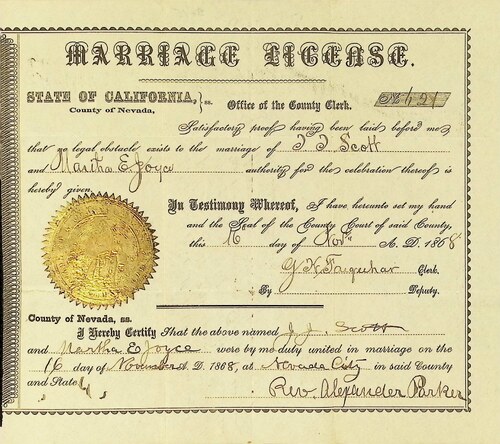 MARRIAGE LICENSE.
STATE OF CALIFORNIA, } ss. Office of the County Clerk. No 621
County of Nevada,
Satisfactory proof having been laid before me
that no legal obstacle exists to the marriage of J. J. Scott
and Martha E Joyce authority for the celebration thereof is
hereby given.
In Testimony Whereof, I have hereunto set my hand
and the Seal of the County Court of said County,
this 16 day of Novr A. D. 1868
G K Farquhar Clerk.
By Deputy.
County of Nevada, ss.
I Hereby Certify That the above named J. J. Scott
and Martha E Joyce were by me duly united in marriage on the
16 day of November A. D. 1868, at Nevada City in said County
and State,
Rev. Alexander Parker